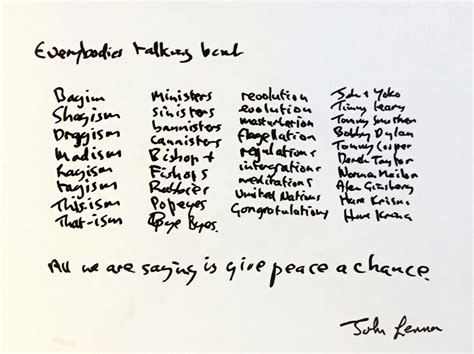 Everybodies talking bout
Bagism Ministers revolution John + Yoko
Shagism sinisters evolution Timmy Leary
Dragism bannisters masturbation Tommy Smothers
Madism Cannisters flagellation Bobby Dylan
Ragism Bishop + regulations Tommy Cooper
tagism Fishops integrations Derek Taylor
This-ism Rabbis meditations Norman Mailer
That-ism Popeyes United Nations Alan Ginsberg
Bye Byes Congratulations Hare Krisna
Hare Krsna
All we are saying is give peace a chance.
John Lennon